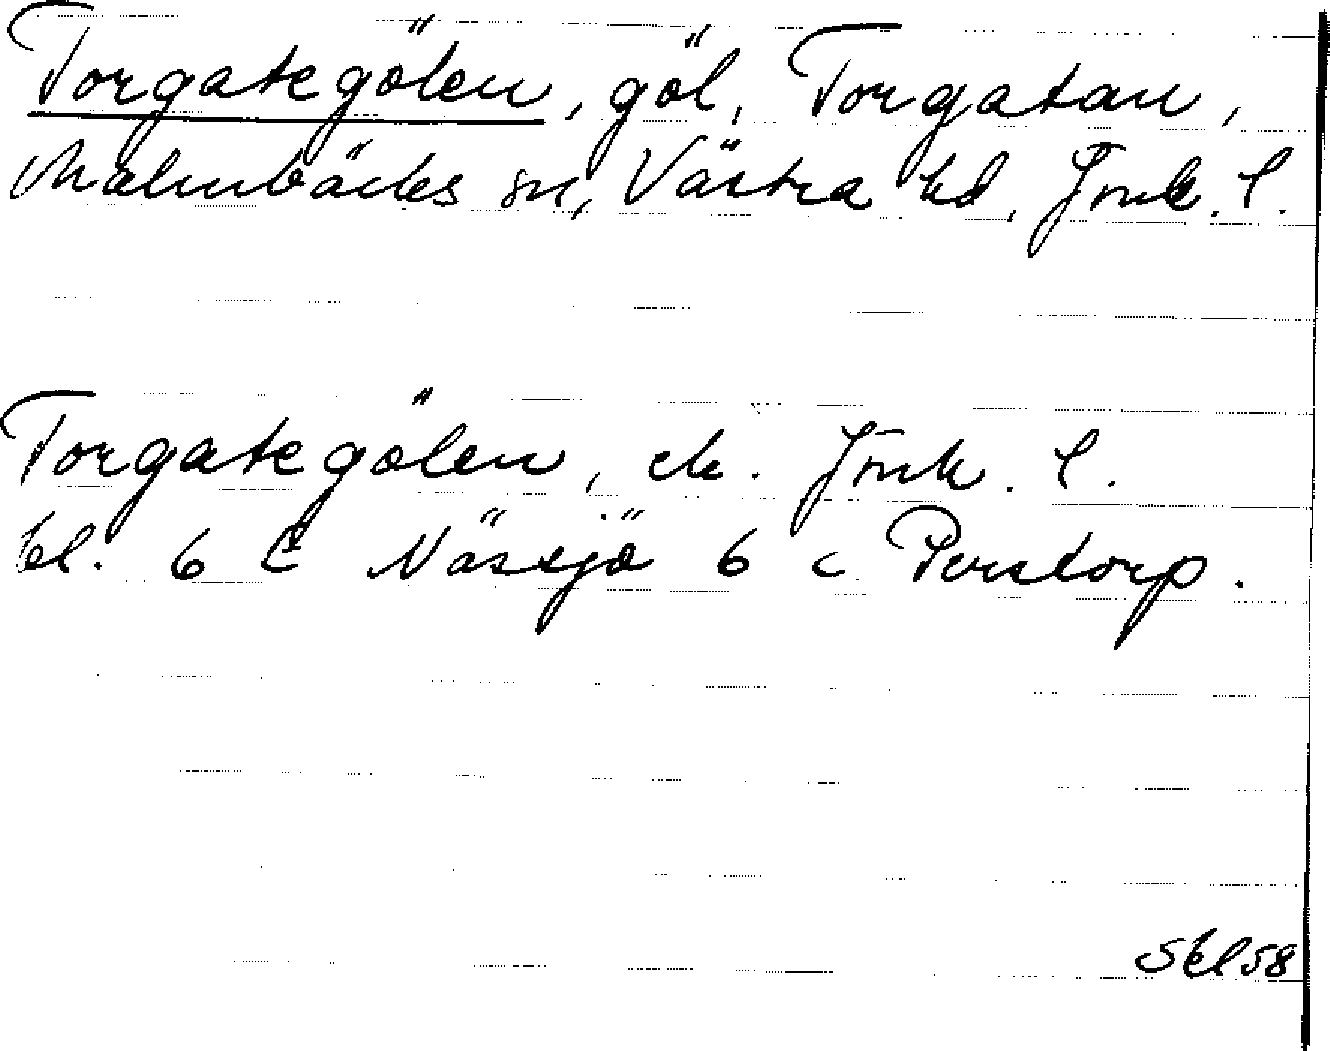 Torgategölen, göl, Torgatan,
Malmbäcks sn, Västra hd, Jönk. l.
Torgategölen, ek. Jönk. l.
bl. 6 E Nässjö 6 c Perstorp.
Skl 58